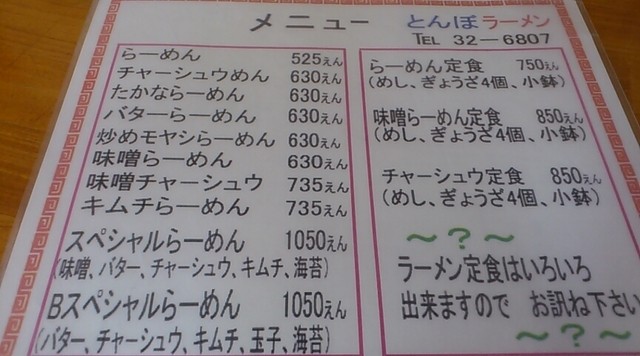 メニュー
とんぼラーメン
TEL 32-6807
らーめん 525えん
チャーシュウめん 630えん
たかならーめん 630えん
バターらーめん 630えん
炒めモヤシらーめん 630えん
味噌らーめん 630えん
味噌チャーシュウ 735えん
キムチらーめん 735えん
スペシャルらーめん 1050えん
(味噌、バター、チャーシュウ、キムチ、海苔)
Bスペシャルらーめん 1050えん
(バター、チャーシュウ、キムチ、玉子、海苔)
らーめん定食 750えん
(めし、ぎょうざ4個、小鉢)
味噌らーめん定食 850えん
(めし、ぎょうざ4個、小鉢)
チャーシュウ定食 850えん
(めし、ぎょうざ4個、小鉢)
～？～
ラーメン定食はいろいろ
出来ますので お訊ね下さい
～？～